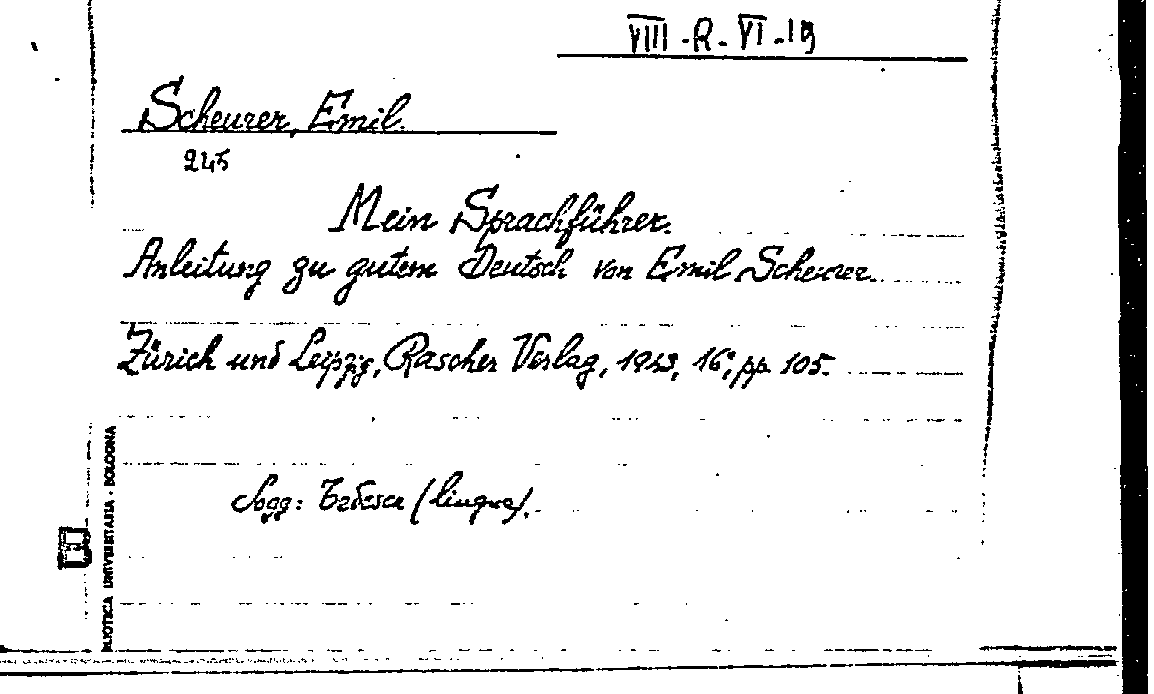 VIII - R - VI - 19
Scheurer, Emil.
245
Mein Sprachführer.
Anleitung zu gutem Deutsch von Emil Scheurer.
Zürich und Leipzig, Rascher Verlag, 1943, 16°, pp. 105.
Sogg: Tedesca (lingua).
BLIOTECA UNIVERSITARIA - BOLOGNA